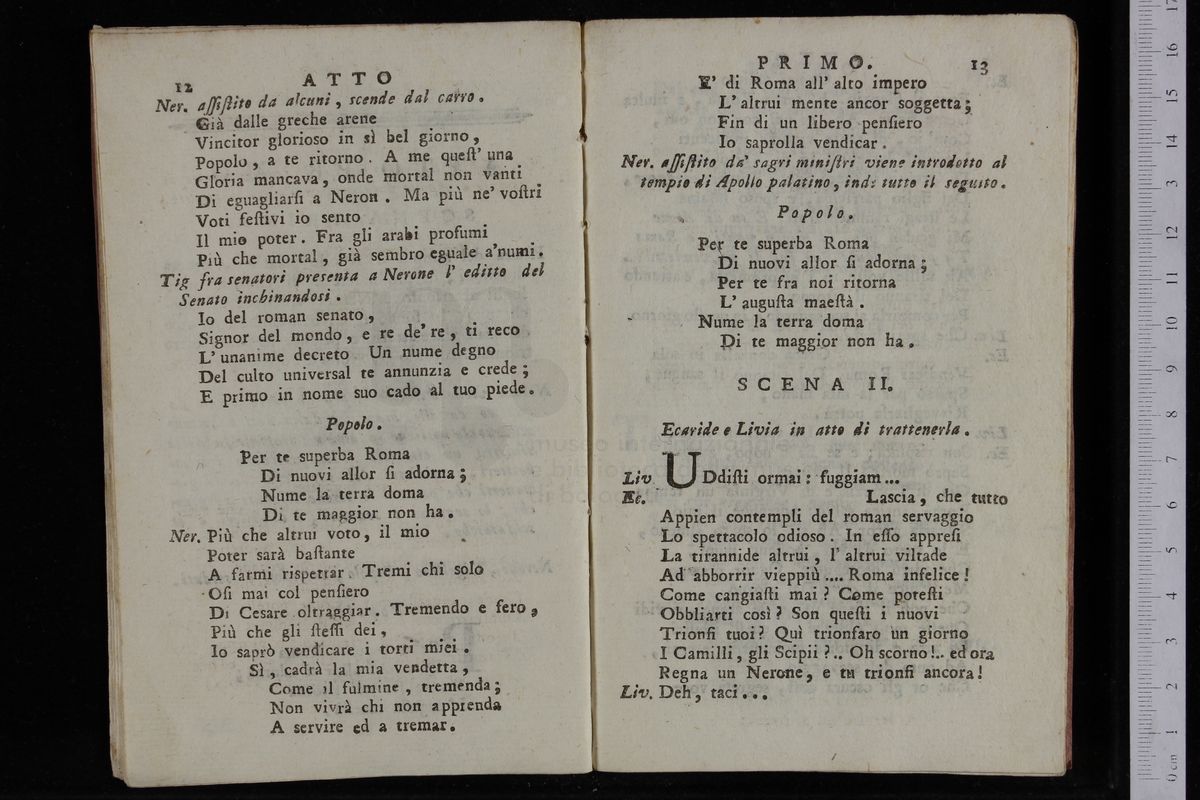 12 ATTO
Ner. aſſiſtito da alcuni, scende dal carro.
Già dalle greche arene
Vincitor glorioso in sì bel giorno,
Popolo, a te ritorno. A me queſt' una
Gloria mancava, onde mortal non vanti
Di eguagliarſi a Neron. Ma più ne' voſtri
Voti feſtivi io sento
Il mio poter. Fra gli arabi profumi
Più che mortal, già sembro eguale a' numi.
Tig fra senatori presenta a Nerone l' editto del
Senato inchinandosi.
Io del roman senato,
Signor del mondo, e re de' re, ti reco
L' unanime decreto Un nume degno
Del culto universal te annunzia e crede;
E primo in nome suo cado al tuo piede.
Popolo.
Per te superba Roma
Di nuovi allor ſi adorna;
Nume la terra doma
Di te maggior non ha.
Ner. Più che altrui voto, il mio
Poter sarà baſtante
A farmi rispettar. Tremi chi solo
Oſi mai col penſiero
Di Cesare oltraggiar. Tremendo e fero,
Più che gli ſteſſi dei,
Io saprò vendicare i torti miei.
Sì, cadrà la mia vendetta,
Come il fulmine, tremenda;
Non vivrà chi non apprenda
A servire ed a tremar.
PRIMO. 13
E' di Roma all' alto impero
L' altrui mente ancor soggetta;
Fin di un libero penſiero
Io saprolla vendicar.
Ner. aſſiſtito da' sagri miniſtri viene introdotto al
tempio di Apollo palatino, indi tutto il seguito.
Popolo.
Per te superba Roma
Di nuovi allor ſi adorna;
Per te fra noi ritorna
L' auguſta maeſtà.
Nume la terra doma
Di te maggior non ha.
SCENA II.
Ecaride e Livia in atto di trattenerla.
Liv UDdiſti ormai: fuggiam...
Ec. Lascia, che tutto
Appien contempli del roman servaggio
Lo spettacolo odioso. In eſſo appreſi
La tirannide altrui, l' altrui viltade
Ad abborrir vieppiù.... Roma infelice!
Come cangiaſti mai? Come poteſti
Obbliarti così? Son queſti i nuovi
Trionfi tuoi? Quì trionfaro un giorno
I Camilli, gli Scipii?.. Oh scorno!.. ed ora
Regna un Nerone, e tu trionfi ancora!
Liv. Deh, taci...